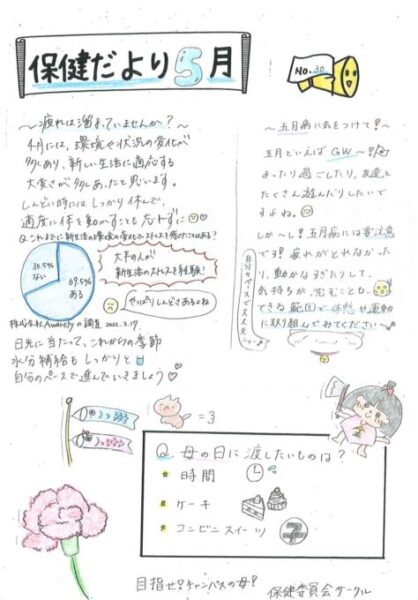 保健だより5月
No.30
~疲れは溜まっていませんか?~
4月には、環境や状況の変化が
多くあり、新しい生活に適応する
大変さが多くあったと思います。
しんどい時にはしっかり休んで、
適度に体を動かすことも忘れずに
Q.これまでに新生活の環境の変化でストレスを感じたことはある?
30.5%
ない
69.5%
ある
大半の人が
新生活のストレスを経験!
やっぱりしんどさあるよね
の調査 2022.3.17
日光に当たって、これからの季節
水分補給もしっかりと
自分のペースで進んでいきましょう♡
~五月病に気をつけて!~
五月といえば GW~!
まったり過ごしたり、友達と
たくさん遊んだりしたいで
すよね。
しか~し!五月病には要注意
です!疲れがとれなかった
り、動かなすぎたりして、
気持ちが沈むことも。
できる範囲で休憩や運動
に取り組んでみてください~
自分のペースで大丈夫
Q.母の日に渡したいものは?
★ 時間
★ ケーキ
★ コンビニスイーツ
7
目指せ!キャンパスの母!
保健委員会サークル